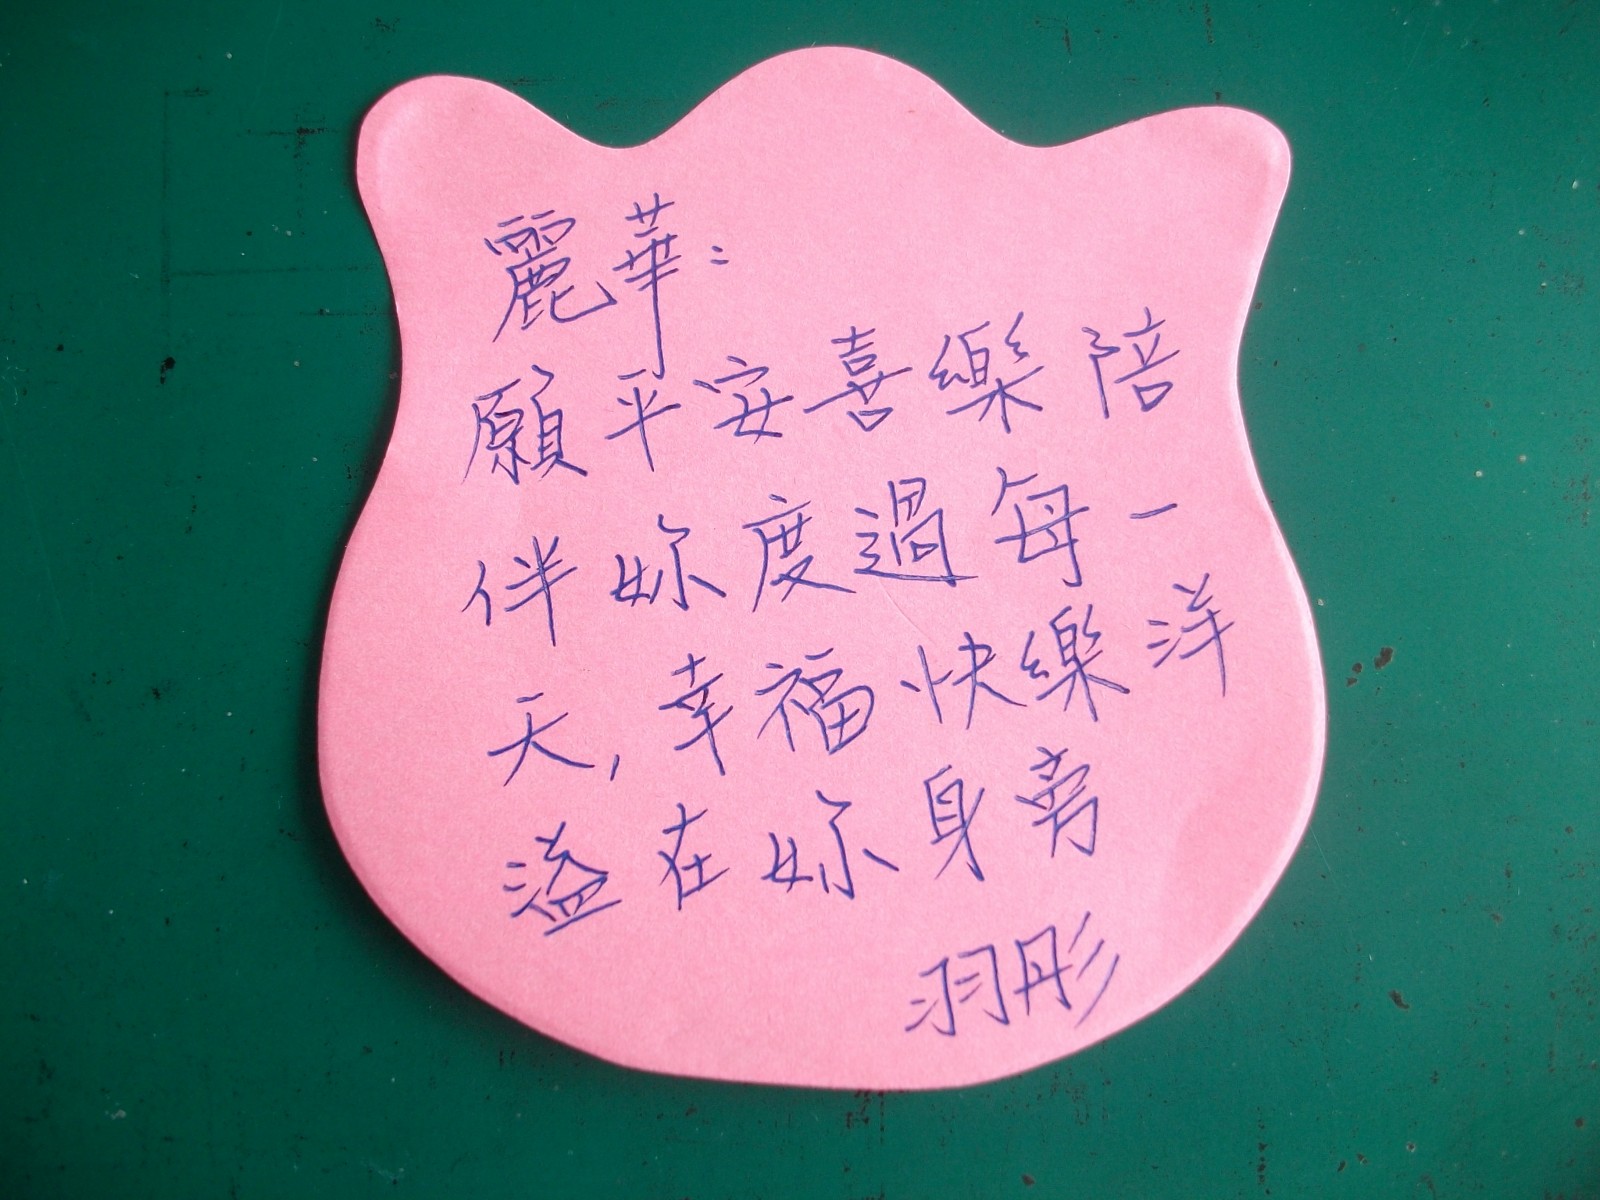 麗華：
願平安喜樂陪
伴妳度過每一
天，幸福快樂洋
溢在妳身旁
羽彤